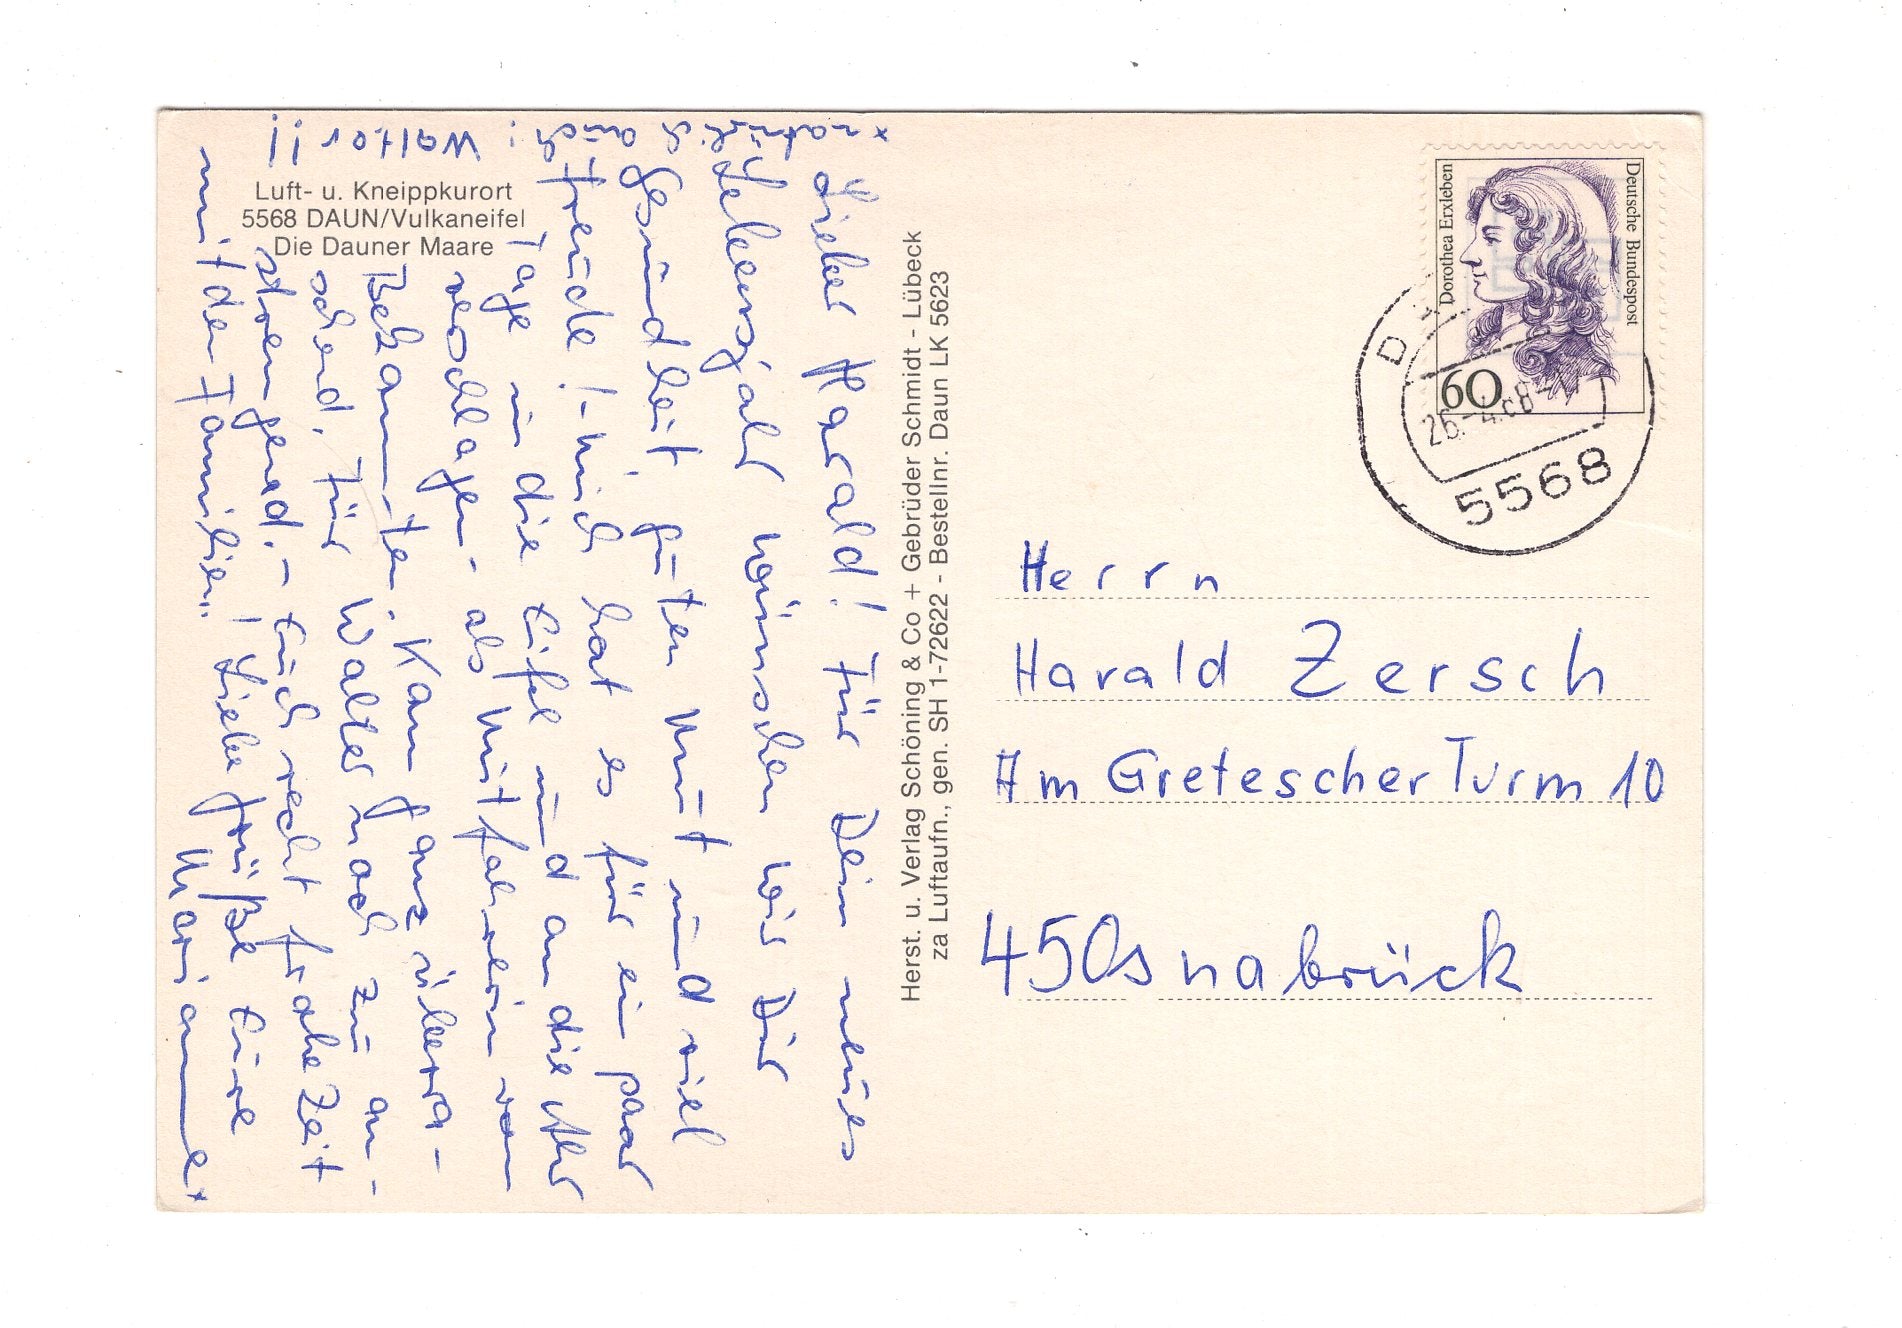 Luft- u. Kneippkurort
5568 DAUN/Vulkaneifel
Die Dauner Maare
Lieber Harald! Für Dein neues
Lebensjahr wünschen wir Dir
Gesundheit, guten Mut und viel
Freude! - Mich hat es für ein paar
Tage in die Eifel und an die Ahr
verschlagen - als Mitfahrerin von
Bekannten. Kam ganz überra-
schend. Für Walter noch zu an-
strengend. - Euch recht frohe Zeit
mit den Familien! Liebe Grüße Eure
Marianne*
*natürlich auch
: Walter!!
Herst. u. Verlag Schöning & Co + Gebrüder Schmidt - Lübeck
za Luftaufn., gen. SH 1-72622 - Bestellnr. Daun LK 5623
Deutsche Bundespost
Dorothea Erxleben
60
26.-4.
5568
Herrn
Harald Zersch
Am Gretescher Turm 10
45 Osnabrück